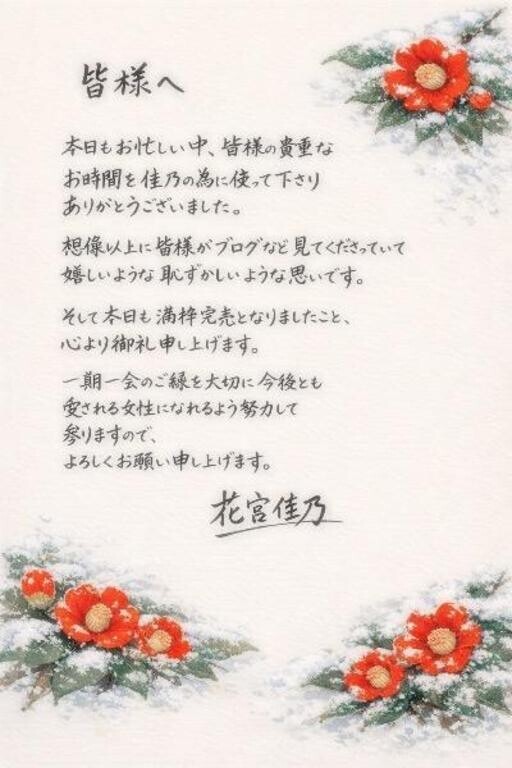 皆様へ
本日もお忙しい中、皆様の貴重な
お時間を佳乃の為に使って下さり
ありがとうございました。
想像以上に皆様がブログなど見てくださっていて
嬉しいような恥ずかしいような思いです。
そして本日も満枠完売となりましたこと、
心より御礼申し上げます。
一期一会のご縁を大切に今後とも
愛される女性になれるよう努力して
参りますので、
よろしくお願い申し上げます。
花宮佳乃